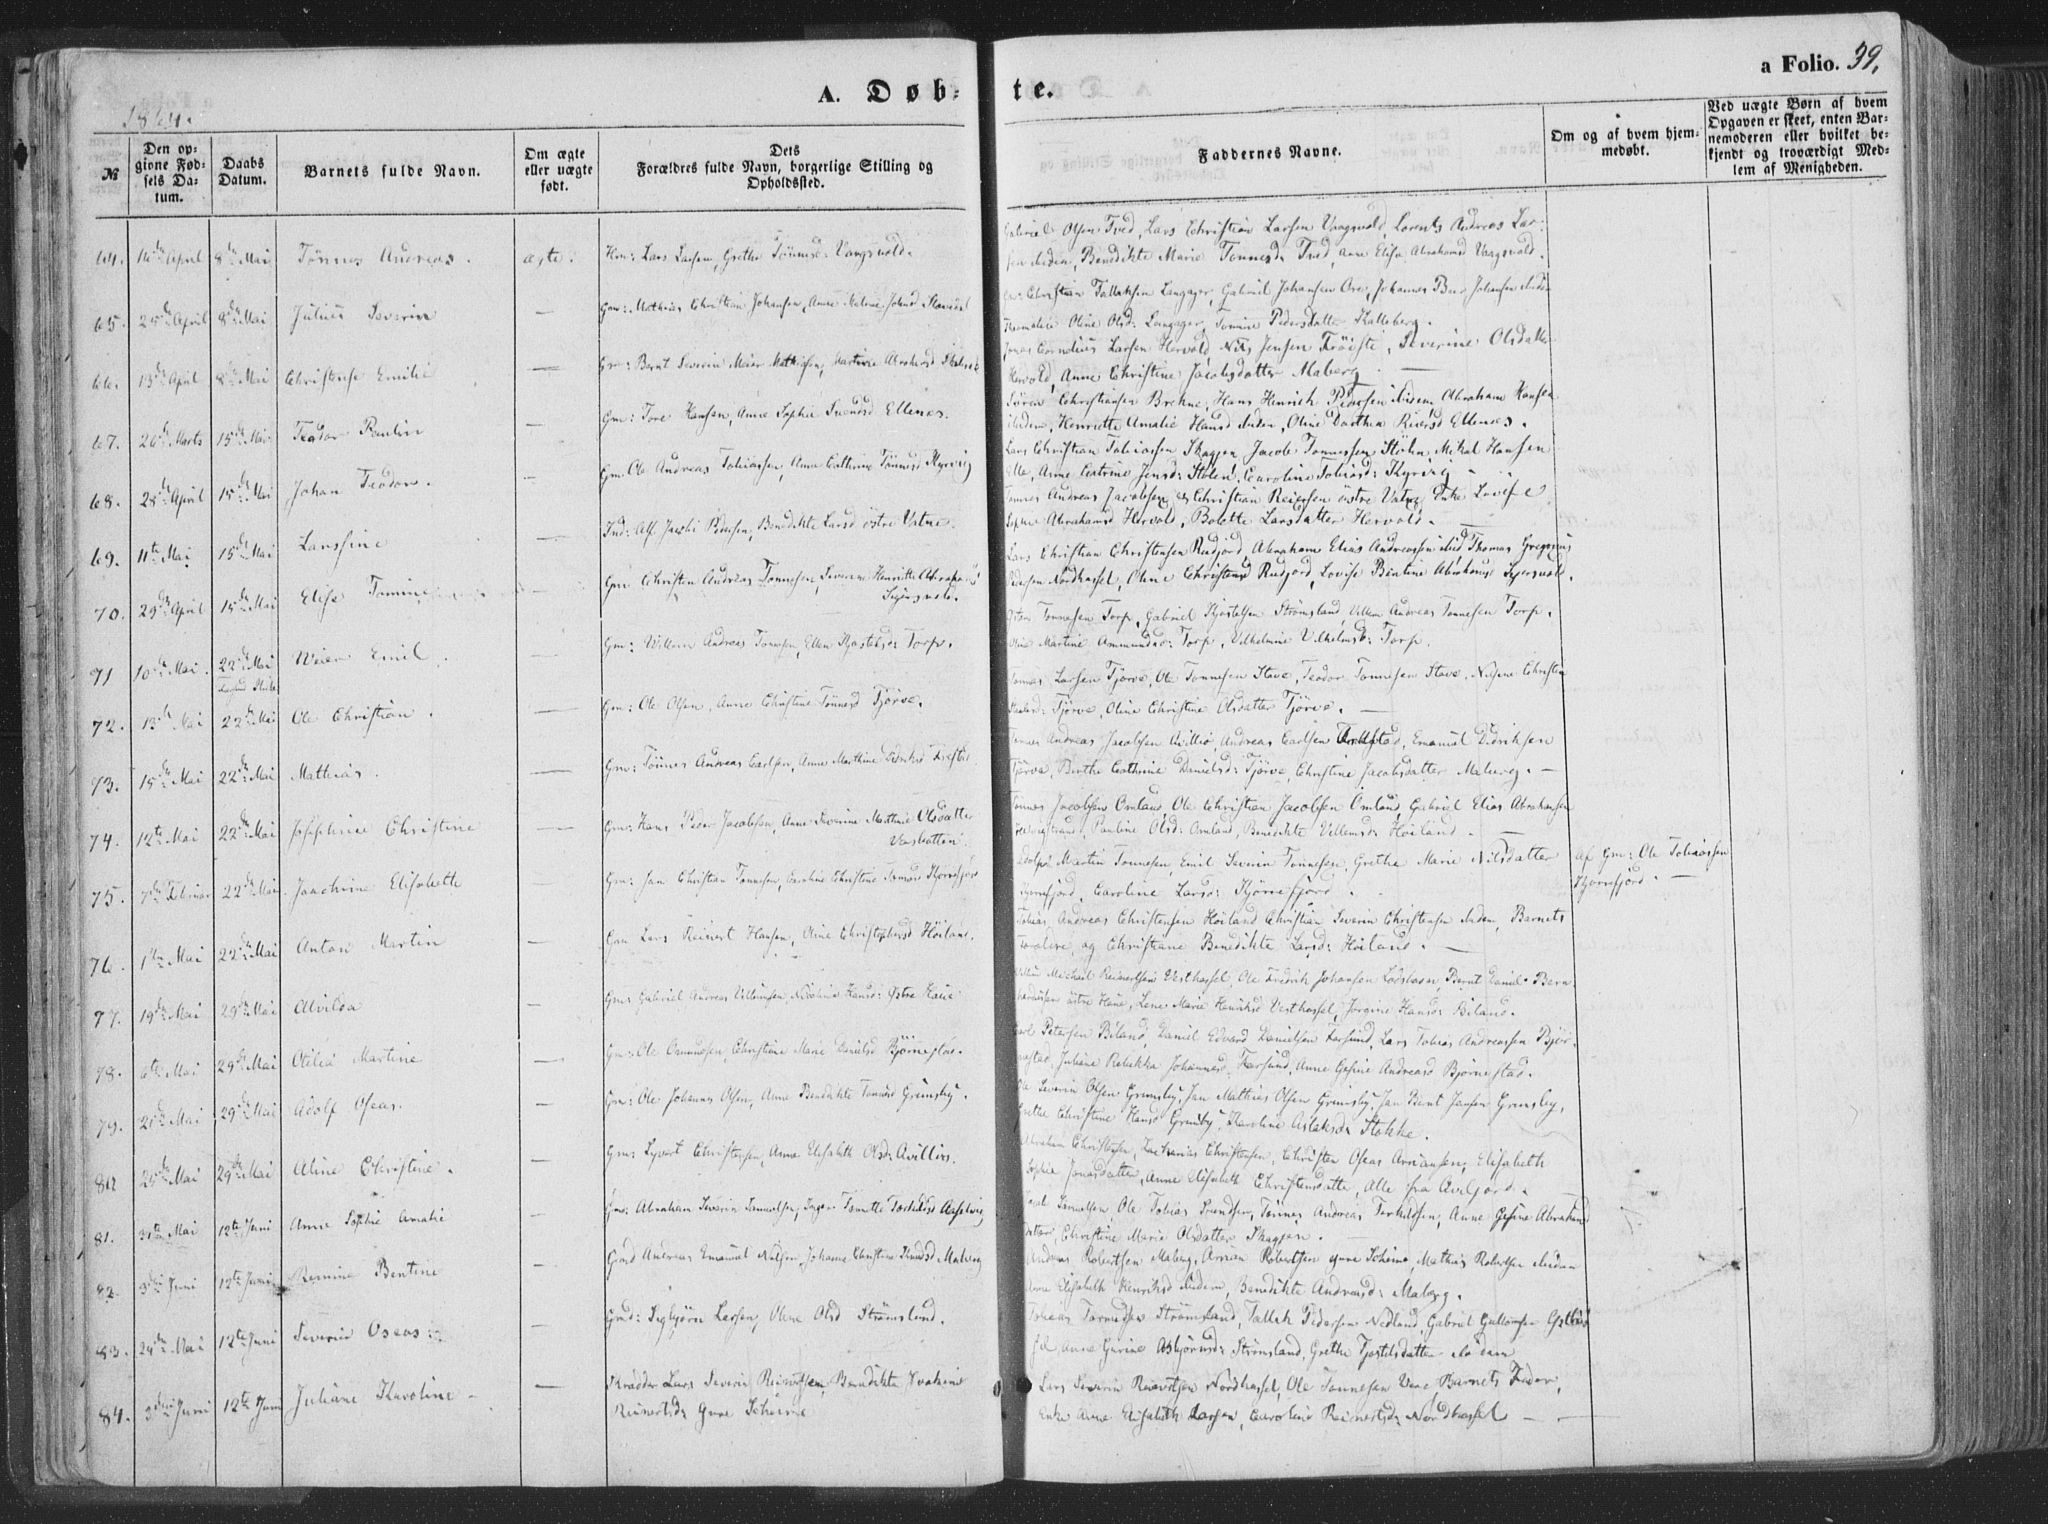 a Folio. 39,
A. Døb-
te.
1864.
№
Den opgivne Fødsels Datum.
Daabs Datum.
Barnets fulde Navn.
Om ægte eller uægte født.
Dets Forældres fulde Navn, borgerlige Stilling og Opholdssted.
Faddernes Navne.
Om og af hvem hjemmedøbt.
Ved uægte Børn af hvem Opgaven er skeet, enten Barnemoderen eller hvilket bekjendt og troværdigt Medlem af Menigheden.
64. 14de April 8de Mai Tønnes Andreas. ægte: Hm: Lars Larsen, Grethe Tønnesd: Vaagsvold.
Gabriel Olsen Tved, Lars Christian Larsen Vaagsvold, Lorents Andreas Lar-
sen ibiden, Benedikte Marie Tønnesd: Tved, Anne Elisa Abrahamsd Vaagsvold.
65. 25de April 8de Mai Julius Severin — Gm: Mathias Christian Johansen, Anne Malene
Christian Tallaksen Langager, Gabriel Johansen Ore, Johannes
Oline Olsd: Langager, Tomine Pedersdatter Kalleberg.
66. 13de April 8de Mai Christense Emilie — Gm: Bernt Severin Meier Mathisen, Martine Abrahamsd
Jonas Cornelius Larsen Hervold, Nils Jensen Frøiste, Severine Olsdatter
Hervold, Anne Christine Jacobsdatter Maberg. —
67. 26de Marts 15de Mai Teodor Paulin — Gm: Tore Hansen, Anne Sophie Svendsd Ellenes.
Søren Christiansen Brekne, Hans Henrich Pedersen ibidem, Abraham Hansen
ibidem, Henriette Amalie Hansd ibiden, Oline Dorthea Reiersd Ellenes.
68. 28de April 15de Mai Johan Teodor. — Gm: Ole Andreas Tobiassen, Anne Cathrine Tønnesd Kyrvig
Lars Christian Tobiassen Skagen, Jacob Tønnesen Stølen, Mikal Hansen
Anne Catrine Jensd: Stølen, Caroline Tobiasd: Kyrvig
69. 11te Mai 15de Mai Larssine — Ind: Alf Jacob Pedersen, Benedikte Larsd østre Vatne.
Tønnes Andreas Jacobsen, Christian Reiersen østre Vatne, Enke Lovise
Sophie Abrahamsd Hervold, Bolette Larsdatter Hervold.
70. 29de April 15de Mai Elise Tomine — Gm: Christen Andreas Tønnesen, Severine Henriette Abrahamsd
Lars Christian Christensen Rudjord, Abraham Elias Andreassen ibid, Thomas Gregorius
Pedersen Nordhassel, Oline Christensd Rudjord, Lovise Bentine Abrahamsd
71 10de Mai. 22de Mai Meier Emil — Gm: Willum Andreas Tønnesen, Ellen Kjostelsd: Torp.
Tønnesen Torp, Gabriel Kjostelsen Strømsland, Villum Andreas Tønnesen Torp.
Oline Martine Ammundsd: Torp, Vilhelmine Vilhelmsd: Torp.
72. 13de Mai 22de Mai Ole Christian. — Gm: Ole Olsen, Anne Christine Tønnesd Tjørve.
Tønnes Larsen Tjørve, Ole Tønnesen Stave, Teodor Tønnesen Stave, Nilsine Christine
Tjørve, Oline Christine Olsdatter Tjørve. —
73. 15de Mai 22de Mai Mathias. — Gm: Tønnes Andreas Carlsen, Anne Marthine Didriksd
Tønnes Andreas Jacobsen Avillio, Andreas Carlsen, Emanuel Didriksen
Tjørve, Berthe Cathrine Danielsd: Tjørve, Christine Jacobsdatter Maberg. —
74. 12te Mai 22de Mai Josephine Christine — Gm: Hans Peder Jacobsen, Anne Severine Mathea Olsdatter
Verebatten.
Tønnes Jacobsen Omland, Ole Christian Jacobsen Omland, Gabriel Elias Abrahamsen
Pauline Olsd: Omland, Benedikte Villumsd: Høiland. —
75. 7de Februar 22de Mai Joachime Elisabeth — Gm: Jan Christian Tønnesen, Caroline Christine Kjørrefjord
Adolph Martin Tønnesen, Emil Severin Tønnesen, Grethe Marie Nilsdatter
Kjørrefjord, Caroline Larsd: Kjørrefjord.
Af Gm: Ole Tobiassen
Kjørrefjord. —
76. 1ste Mai 22de Mai Anton Martin — Gm Lars Reinert Hansen, Oline Christophersd Høiland.
Tobias Andreas Christensen Høiland, Christian Severin Christensen ibiden, Barnets
Forældre, og Christiane Benedikte Larsd: Høiland. —
77. 19de Mai 29de Mai Alvilda — Gm: Gabriel Andreas Villumsen, Nicoline Hansd: Østre Haue
Michael Reinertsen Vesthassel, Ole Fredrik Johansen Lodshavn, Bernt Daniel Bern-
hardsen østre Haue, Lene Marie Henriksd Vesthassel, Jørgine Hansd: Biland.
78. 6te Mai 29de Mai Otilia Martine — Gm: Ole Osmundsen, Christine Marie Danielsd Bjørnestad.
Carl Petersen Biland, Daniel Edvard Danielsen Farsund, Lars Tobias Andreassen Bjør-
nestad, Juliane Rebekka Johannesd: Farsund, Anne Gesine Andreasd Bjørnestad.
79. 21de Mai 29de Mai Adolf Oseas. — Gm: Ole Johannes Olsen, Anne Benedikte Tønnesd Grimsby.
Ole Severin Olsen Grimsby, Jan Mathias Olsen Grimsby, Jan Bernt Jansen Grimsby,
Grethe Christine Hansd Grimsby, Karoline Aslaksd: Stokke.
80 25de Mai 29de Mai Aline Christine. — Gm: Syvert Christensen, Anne Elisabeth Olsd: Avillien.
Abraham Christensen, Zacharias Christensen, Christen Oseas Arriansen, Elisabeth
Sophie Jonasdatter, Anne Elisabeth Christensdatter, Alle fra Aveljord.
81. 31te Mai 12te Juni Anne Sophie Amalie — Gm: Abraham Severin Samuelsen, Inger Tonette Torkildsd
Samuelsen, Ole Tobias Svendsen, Tønnes Andreas Torkildsen, Anne Gesine Abrahams
datter, Christine Marie Olsdatter Skagen. —
82. 3die Juni 12te Juni Remine Bentine — Gmd Andreas Emanuel Nilsen, Johanne Christine Knudsd Maberg
Andreas Robertsen Maberg, Arrian Robertsen, Mathias Robertsen ibidem
Anne Elisabeth Henriksd ibidem, Benedikte Andreasd: Maberg.
83. 24de Mai 12te Juni Severin Oseas: — Gmd: Sigbjørn Larsen, Olene Olsd Strømsland.
Tobias Tormodsen Strømsland, Tallak Pedersen Nedland, Gabriel
Anne Gurine Asbjørnsd: Strømsland, Grethe Tjostelsdatter ibidem
84. 3die Juni 12te Juni Juliane Karoline — Skrædder Lars Severin Reinertsen, Benedikte Joakime
Reinertsd:
Lars Severin Reinertsen Nordhassel, Ole Tønnesen, Barnets Fader,
Enke Anne Elisabeth Larsen, Caroline Reinertsd: Nordhassel —